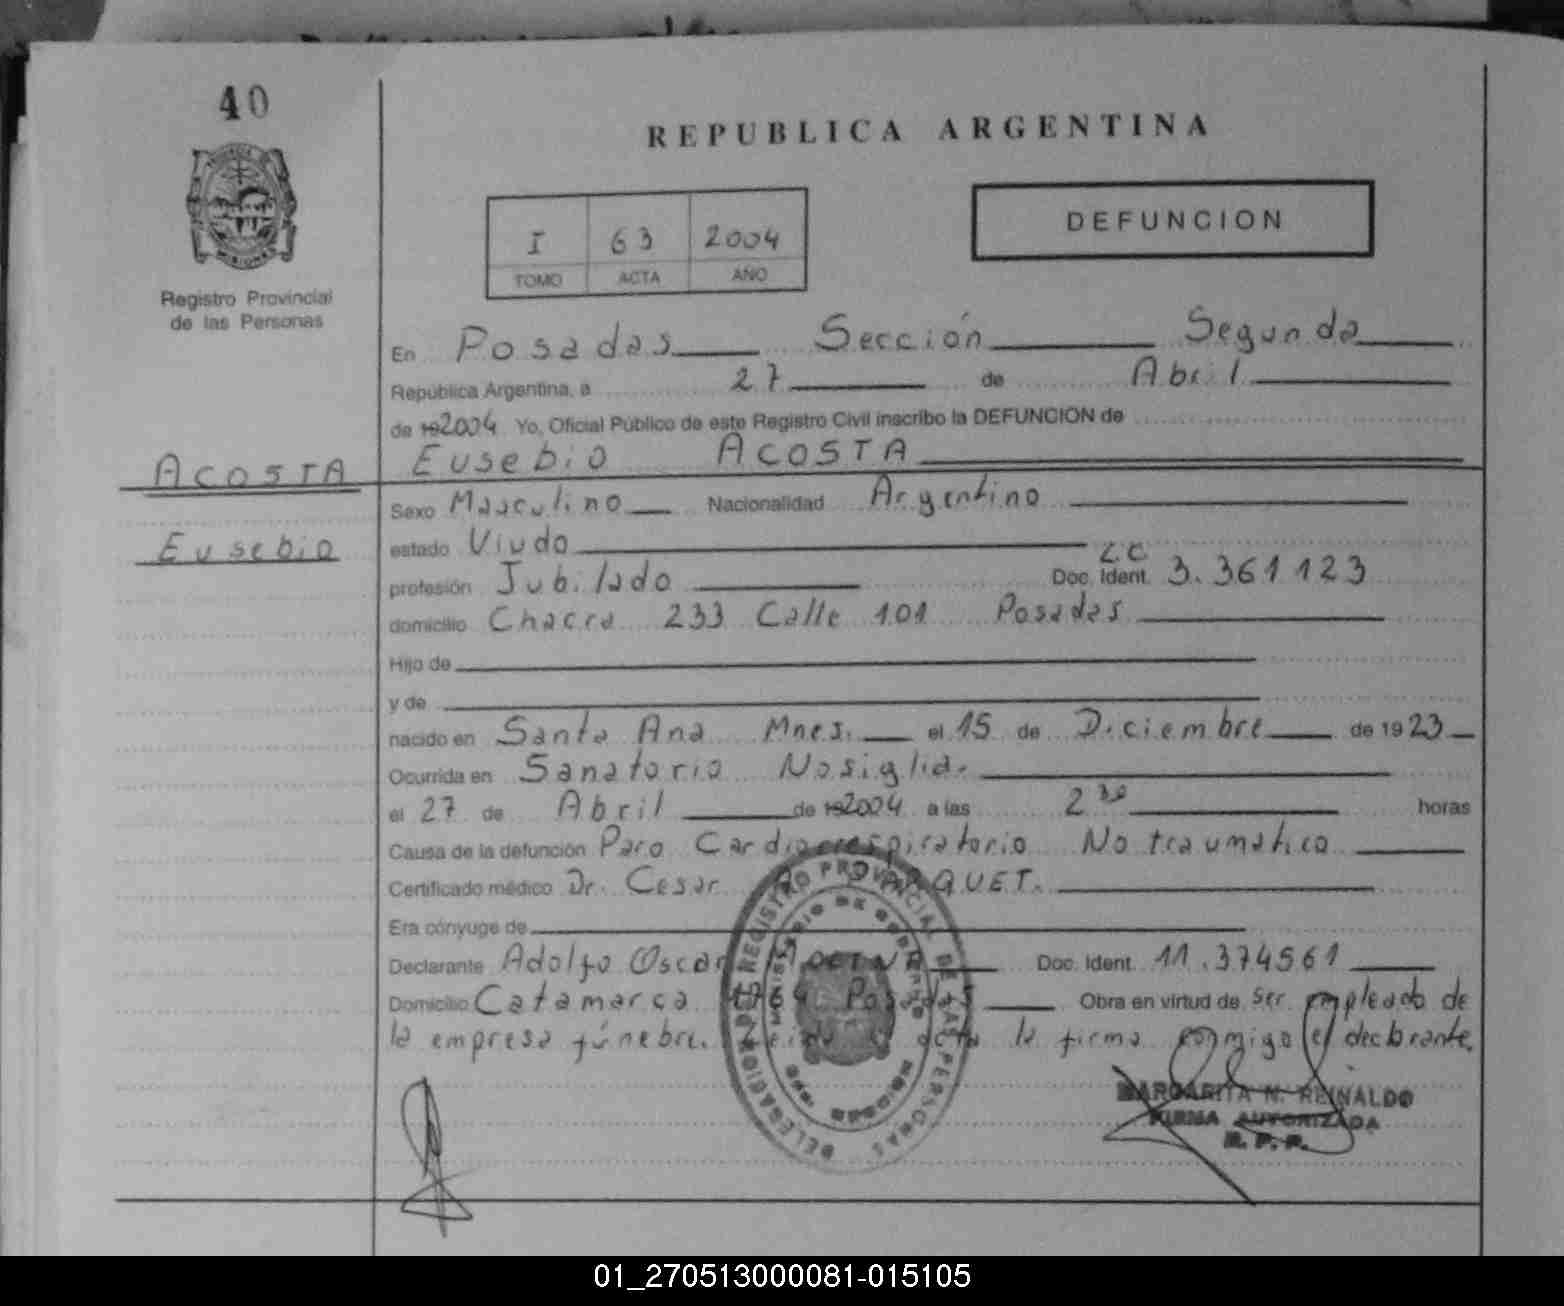 40
REPUBLICA ARGENTINA
MISIONES
Registro Provincial
de las Personas
I 63 2004
TOMO ACTA AÑO
DEFUNCION
En Posadas Sección Segunda
República Argentina, a 27 de Abril
de 192004 Yo, Oficial Público de este Registro Civil inscribo la DEFUNCION de
ACOSTA
Eusebio
Eusebio ACOSTA
Sexo Masculino Nacionalidad Argentino
estado Viudo
profesión Jubilado L.E Doc. Ident. 3.361123
domicilio Chacra 233 Calle 101 Posadas
Hijo de
y de
nacido en Santa Ana Mnes. el 15 de Diciembre de 1923
Ocurrida en Sanatorio Nosiglia.
el 27 de Abril de 192004 a las 2 30 horas
Causa de la defunción Paro Cardiorrespiratorio No traumatico
Certificado médico Dr. Cesar
Era cónyuge de
Declarante Adolfo Oscar Doc. Ident. 11.374561
Domicilio Catamarca Posadas Obra en virtud de ser empleado de
la empresa fúnebre. Leida el acta la firma conmigo el declarante.
DELEGACION REGISTRO PROVINCIAL DE LAS PERSONAS
MARGARITA N. REINALDO
FIRMA AUTORIZADA
R. P. P.
01_270513000081-015105